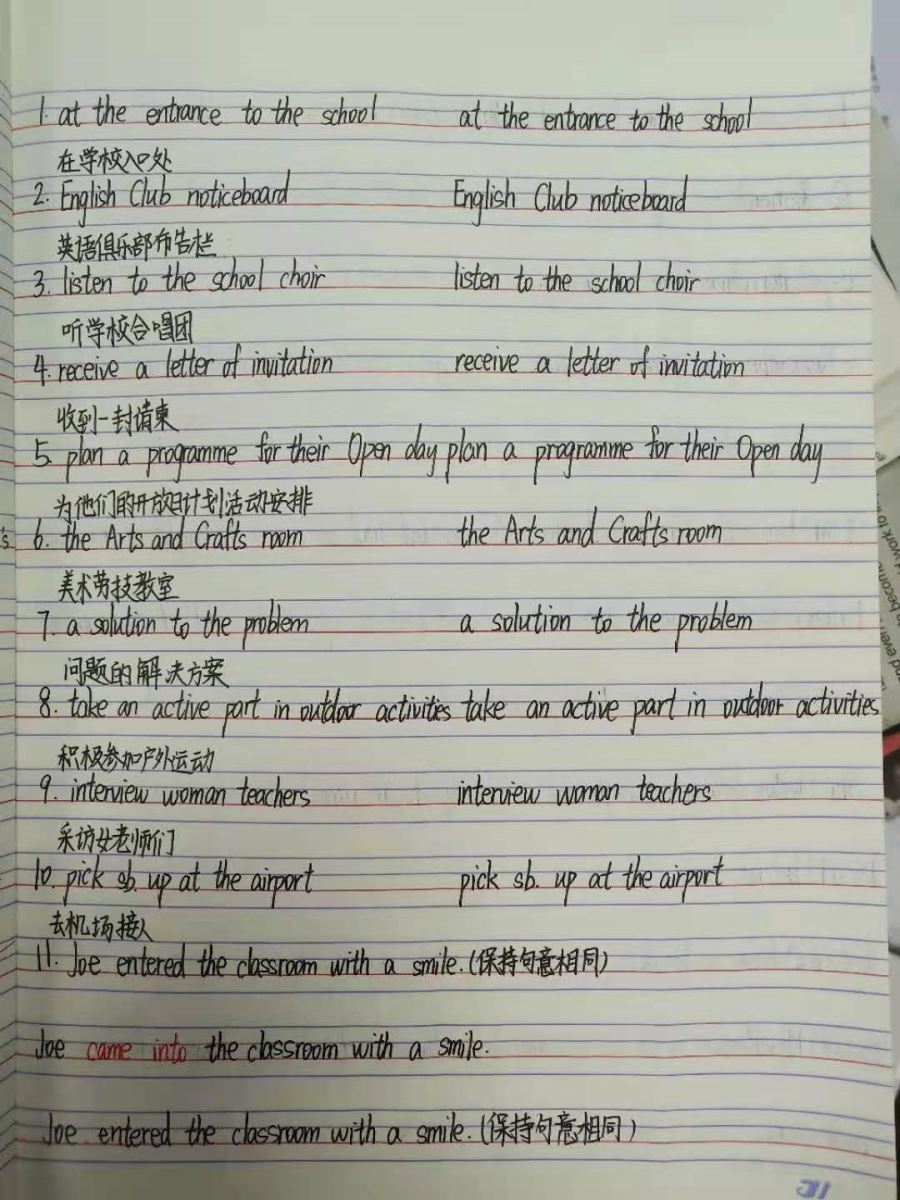 1. at the entrance to the school at the entrance to the school
在学校入口处
2. English Club noticeboard English Club noticeboard
英语俱乐部布告栏
3. listen to the school choir listen to the school choir
听学校合唱团
4. receive a letter of invitation receive a letter of invitation
收到一封请柬
5. plan a programme for their Open day plan a programme for their Open day
为他们的开放日计划活动安排
6. the Arts and Crafts room the Arts and Crafts room
美术劳技教室
7. a solution to the problem a solution to the problem
问题的解决方案
8. take an active part in outdoor activities take an active part in outdoor activities
积极参加户外运动
9. interview woman teachers interview woman teachers
采访女老师们
10. pick sb. up at the airport pick sb. up at the airport
去机场接人
11. Joe entered the classroom with a smile.(保持句意相同)
Joe came into the classroom with a smile.
Joe entered the classroom with a smile.(保持句意相同)